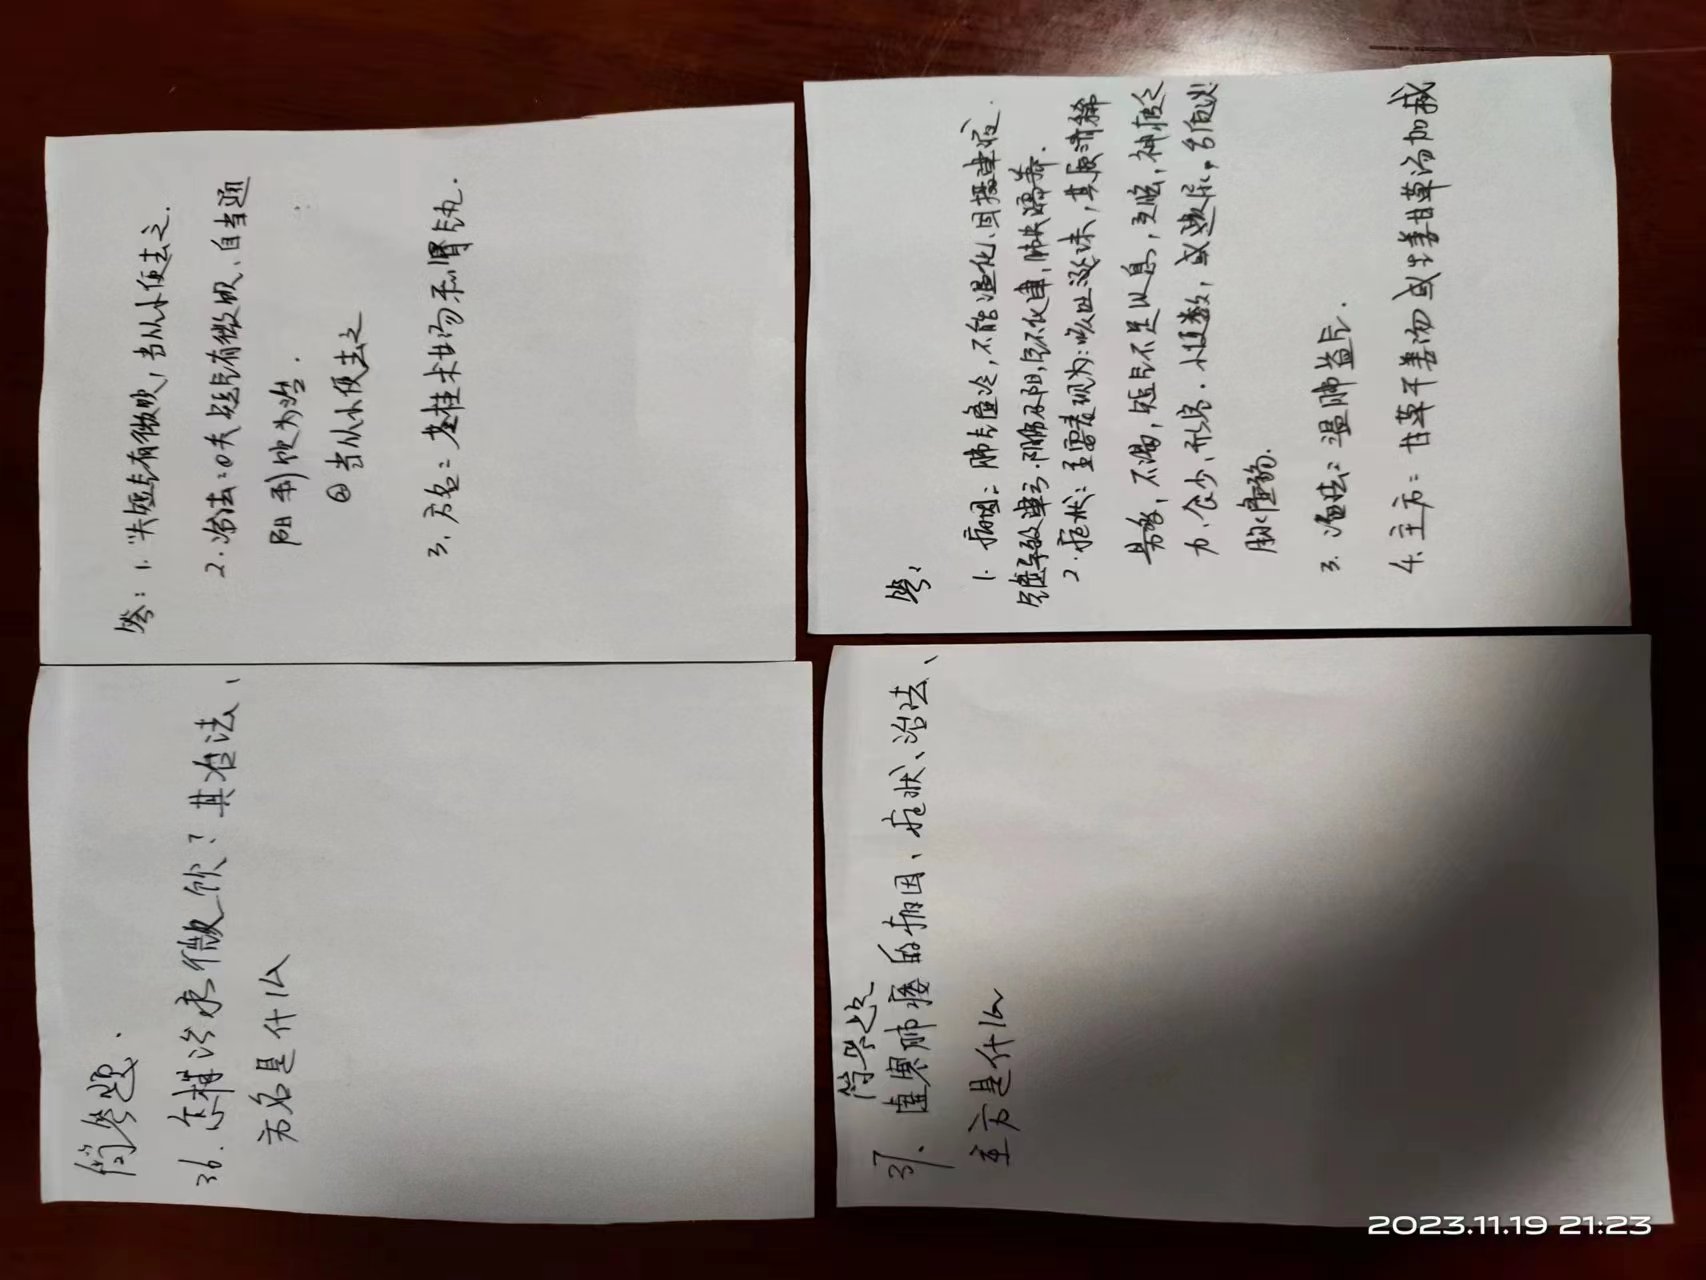 简答题.
36. 怎样治疗微饮？其治法、
方名是什么
答：1. "夫短气有微饮，当从小便去之.
2. 治法：①夫短气有微饮、自当通
阳利饮为治.
②当从小便去之
3. 方名：苓桂术甘汤和肾气丸.
简答题
37、虚寒肺痿的病因、症状、治法、
主方是什么
答：
1. 病因：肺气虚冷，不能温化、固摄津液.
气虚导致津亏.阴伤及阳，气不化津，肺失濡养.
2. 症状：主要表现为：咳吐涎沫，其质清稀
量多，不渴，短气不足以息，头眩，神疲乏
力、食少、形寒.小便数，或遗尿。舌质淡
脉虚弱.
3. 治法：温肺益气.
4. 主方：甘草干姜汤或生姜甘草汤加减
2023.11.19 21:23